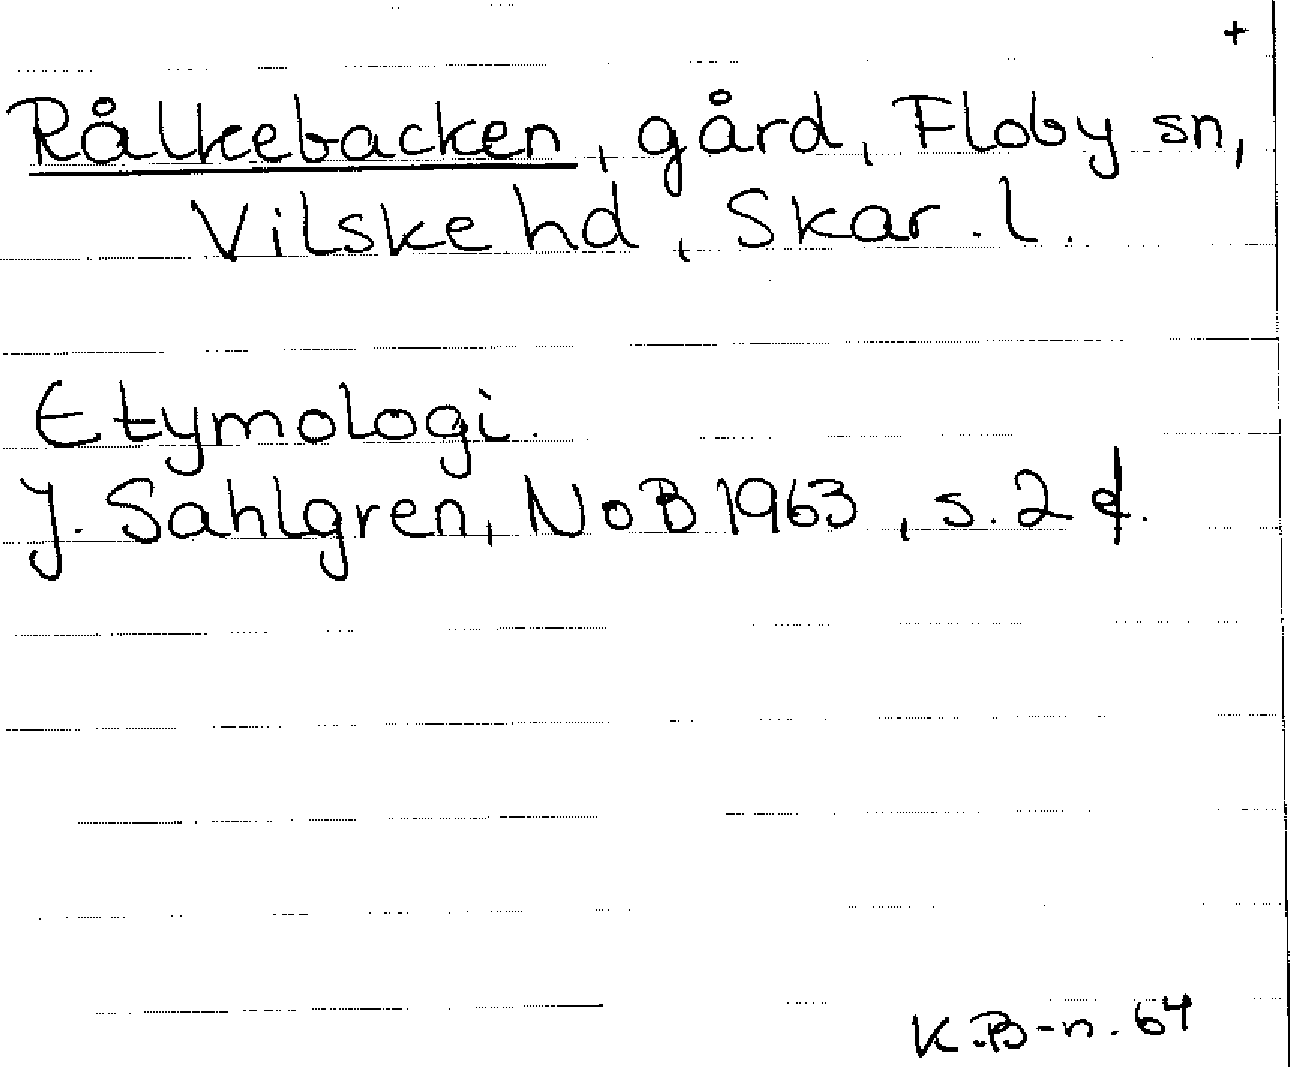 +
Rålkebacken, gård, Floby sn,
Vilske hd, Skar. l.
Etymologi.
J. Sahlgren, NoB 1963, s. 2 f.
K.B-n. 64